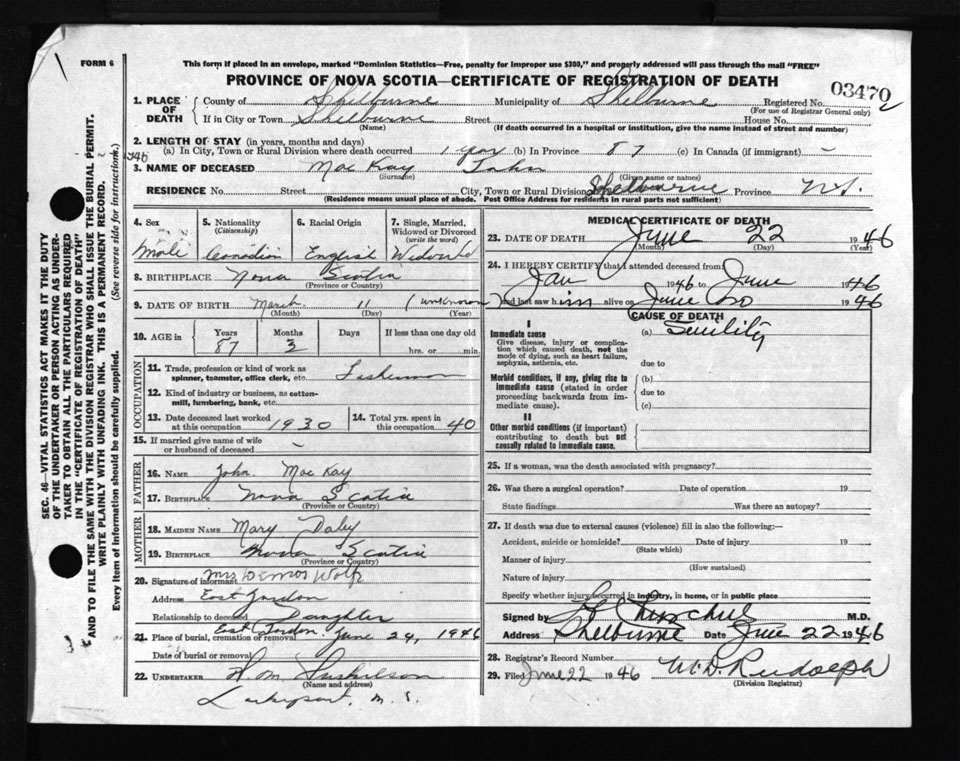 FORM 6
This form if placed in an envelope, marked "Dominion Statistics—Free, penalty for improper use $300," and properly addressed will pass through the mail "FREE"
PROVINCE OF NOVA SCOTIA—CERTIFICATE OF REGISTRATION OF DEATH
03470
1. PLACE OF DEATH
County of Shelburne Municipality of Shelburne Registered No.
(For use of Registrar General only)
If in City or Town Shelburne Street House No.
(Name) (If death occurred in a hospital or institution, give the name instead of street and number)
2. LENGTH OF STAY (in years, months and days)
(a) In City, Town or Rural Division where death occurred 1 year (b) In Province 87 (c) In Canada (if immigrant) –
3. NAME OF DECEASED MacKay John
(Surname) (Given name or names)
RESIDENCE No. Street City, Town or Rural Division Shelbourne Province N.S.
(Residence means usual place of abode. Post Office Address for residents in rural parts not sufficient)
4. Sex
Male
5. Nationality (Citizenship)
Canadian
6. Racial Origin
English
7. Single, Married, Widowed or Divorced (write the word)
Widowed
8. BIRTHPLACE Nova Scotia
(Province or Country)
9. DATE OF BIRTH March 11 (unknown)
(Month) (Day) (Year)
10. AGE in Years Months Days If less than one day old
87 3 hrs. or min.
OCCUPATION
11. Trade, profession or kind of work as spinner, teamster, office clerk, etc. Fisherman
12. Kind of industry or business, as cotton-mill, lumbering, bank, etc.
13. Date deceased last worked at this occupation 1930
14. Total yrs. spent in this occupation 40
15. If married give name of wife or husband of deceased –
FATHER
16. NAME John MacKay
17. BIRTHPLACE Nova Scotia
(Province or Country)
MOTHER
18. MAIDEN NAME Mary Daley
19. BIRTHPLACE Nova Scotia
(Province or Country)
20. Signature of informant Mrs Demos Wolfe
Address East Jordon
Relationship to deceased Daughter
21. Place of burial, cremation or removal East Jordon June 24, 1946
Date of burial or removal
22. UNDERTAKER
(Name and address)
MEDICAL CERTIFICATE OF DEATH
23. DATE OF DEATH June 22 1946
(Month) (Day) (Year)
24. I HEREBY CERTIFY that I attended deceased from:
Jan 1946 to June 1946
and last saw him alive on June 20 1946
CAUSE OF DEATH
I
Immediate cause
Give disease, injury or complication which caused death, not the mode of dying, such as heart failure, asphyxia, asthenia, etc.
(a) Senility
due to
Morbid conditions, if any, giving rise to immediate cause (stated in order proceeding backwards from immediate cause).
(b)
due to
(c)
II
Other morbid conditions (if important) contributing to death but not causally related to immediate cause.
25. If a woman, was the death associated with pregnancy?
26. Was there a surgical operation? Date of operation 19
State findings Was there an autopsy?
27. If death was due to external causes (violence) fill in also the following:—
Accident, suicide or homicide? Date of injury 19
(State which)
Manner of injury
(How sustained)
Nature of injury
Specify whether injury occurred in industry, in home, or in public place
Signed by Churchill M.D.
Address Shelburne Date June 22 1946
28. Registrar's Record Number
29. Filed June 22 1946 W.D. Rudolph
(Division Registrar)
SEC. 46—VITAL STATISTICS ACT MAKES IT THE DUTY
OF THE UNDERTAKER OR PERSON ACTING AS UNDER-
TAKER TO OBTAIN ALL THE PARTICULARS REQUIRED
IN THE "CERTIFICATE OF REGISTRATION OF DEATH"
AND TO FILE THE SAME WITH THE DIVISION REGISTRAR WHO SHALL ISSUE THE BURIAL PERMIT.
WRITE PLAINLY WITH UNFADING INK. THIS IS A PERMANENT RECORD.
Every item of information should be carefully supplied. (See reverse side for instructions.)